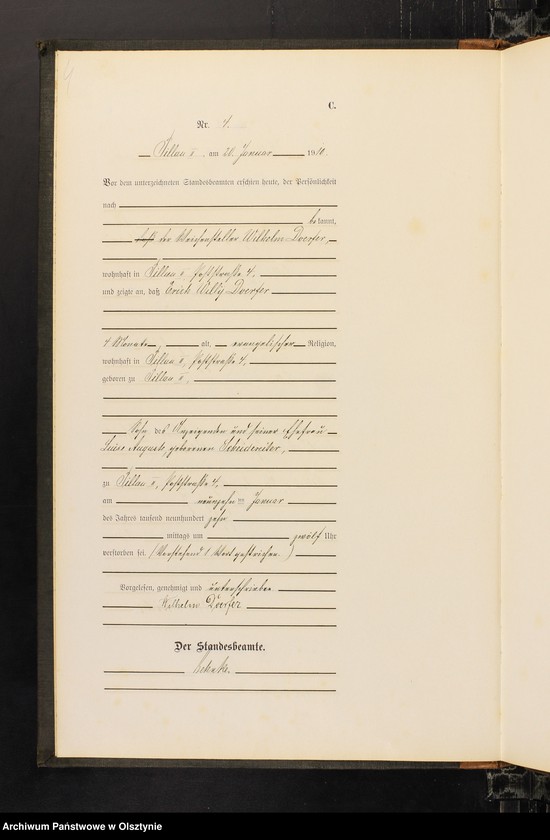 C.
Nr. 4.
Pillau II. am 20. Januar 1910.
Vor dem unterzeichneten Standesbeamten erschien heute, der Persönlichkeit
nach
bekannt,
der Weichensteller Wilhelm Doerfer,
wohnhaft in Pillau II, Poststraße 4,
und zeigte an, daß Erich Willy Doerfer
4 Monate, alt, evangelischer Religion,
wohnhaft in Pillau II, Poststraße 4,
geboren zu Pillau II,
Sohn des Anzeigenden und seiner Ehefrau
Luise Auguste, geborenen
zu Pillau II, Poststraße 4,
am neunzehnten Januar
des Jahres tausend neunhundert zehn
mittags um zwölf Uhr
verstorben sei. (Vorstehend 1 Wort gestrichen.)
Vorgelesen, genehmigt und unterschrieben
Wilhelm Doerfer
Der Standesbeamte.
Archiwum Państwowe w Olsztynie